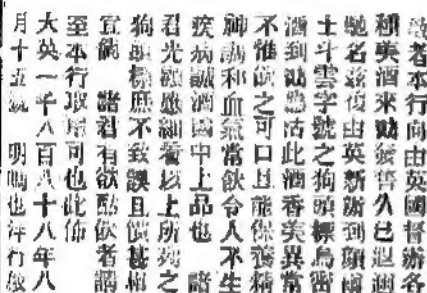 啟者本行向由英國督辦各
種美酒來發售久已遐邇
馳名茲又由英新辦到
士斗雲字號之狗頭標烏啤
酒到應沽此酒香美異常
不惟飲之可口且能保養精
神調和血氣常飲令人不生
疾病誠酒國中上品也 諸
君光顧應細看以上所列之
狗頭標庶不致誤且價甚相
宜倘 諸君有欲點飲者請
至本行取可也此佈
大英一千八百八十八年八
月十五號 明也洋行啟